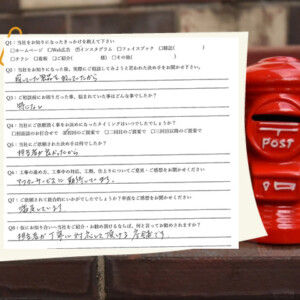 Q1：当社をお知りになったきっかけを教えて下さい
□ホームページ □Web広告 ☑インスタグラム □フェイスブック □雑誌( )
□チラシ □看板 □ご紹介( 様) □その他( )
Q2：当社をお知りになった後、実際にご相談してみようと思われた決め手をお聞かせ下さい。
Q3：ご相談前にお困りだった事、悩まれていた事はどんな事でしたか？
特になし
Q4：当社にご依頼頂く事をお決めになったタイミングはいつでしたでしょうか？
Q5：当社にご依頼された決め手は何でしたか？
担当者が良かったから
Q6：工事の進め方、工事中の対応、工期、仕上りについてご意見・ご感想をお聞かせください
アフターサービスに期待しています。
Q7：ご依頼されて総合的にいかがでしたでしょうか？率直なご感想をお聞かせください
満足しています
Q8：仮にお知り合いへ当社をご紹介・お勧め頂けるならば、何と言ってお勧めされますか？
担当者が丁寧に対応して頂ける会社です
POST